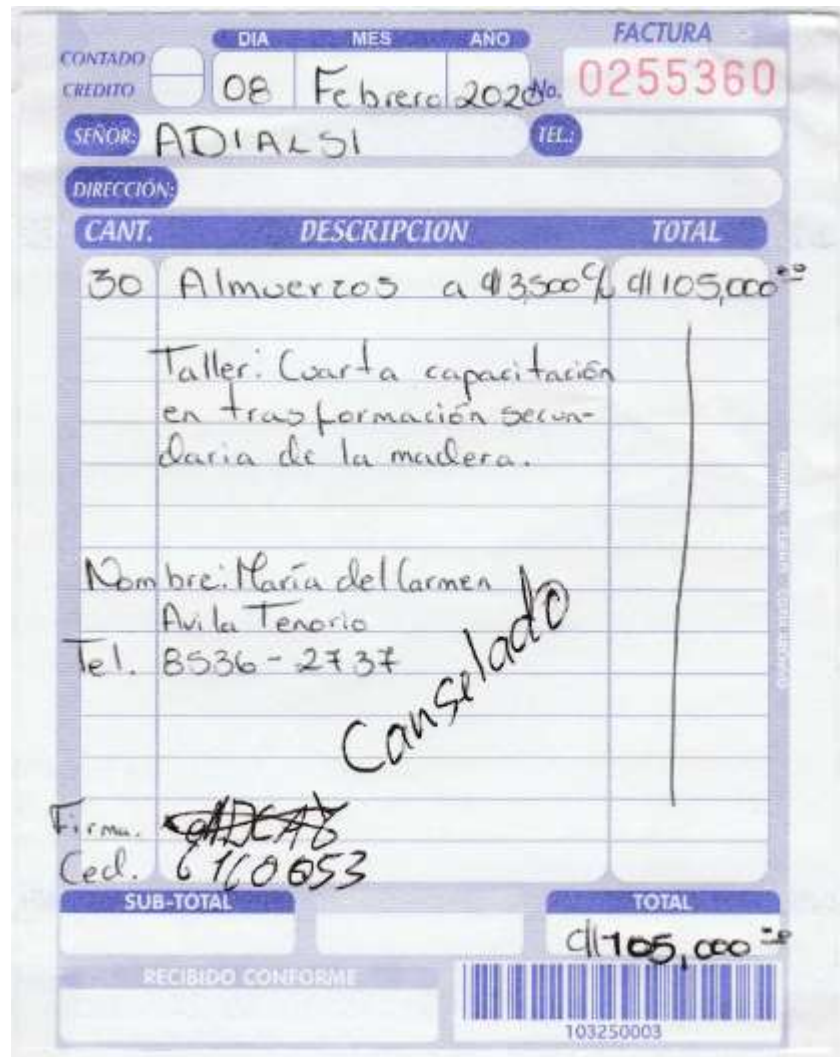 DIA MES AÑO FACTURA
CONTADO
CREDITO 08 Febrero 2020 No. 0255360
SEÑOR: ADIALSI TEL.:
DIRECCIÓN:
CANT. DESCRIPCION TOTAL
30 Almuerzos a ₡3,500 c/u ₡105,000.00
Taller: Cuarta capacitación
en trasformación secun-
daria de la madera.
Nombre: María del Carmen
Avila Tenorio
Tel. 8536-2737
Canselado
Firma.
Ced.
SUB-TOTAL TOTAL
₡105,000.00
RECIBIDO CONFORME
103250003